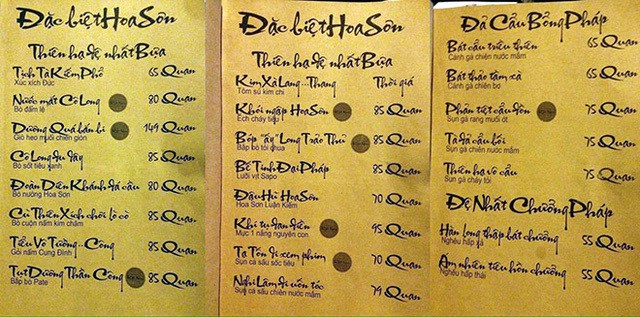 Đặc biệt Hoa Sơn
Thiên hạ đệ nhất Bựa
Tịch Tà Kiếm Phổ 65 Quan
Xúc xích Đức
Nước mắt Cô Long 80 Quan
Bò đấm lệ
Dương Quá bán bi 149 Quan
Giò heo muối chiên giòn
Cô Long du đây 85 Quan
Bò sốt tiêu xanh
Đoàn Diên Khánh đá cầu 80 Quan
Bò nướng Hoa Sơn
Cù Thiên Xích chơi lò cò 85 Quan
Bò cuộn nấm kim châm
Tiêu Vô Tướng...Công 85 Quan
Gỏi nấm Cung Đình
Tụt Dương Thần Công 85 Quan
Bắp bò Pate
Đặc biệt Hoa Sơn
Thiên hạ đệ nhất Bựa
Kim Xà Lang...Thang Thời giá
Tôm sú kim chi
Khói ngập Hoa Sơn 85 Quan
Ếch cháy tiêu
Bóp "ấy" Long Trảo Thủ 85 Quan
Bắp bò tỏi chua
Bế Tinh Đại Pháp 85 Quan
Lưỡi vịt Sapo
Đậu Hũ Hoa Sơn 70 Quan
Hoa Sơn Luận Kiếm
Khí tụ đan điền 95 Quan
Mực 1 nắng nguyên con
Tạ Tốn đi xem phim 70 Quan
Sụn cá sấu sốc tiêu
Nghi Lâm đi uốn tóc 79 Quan
Sụn cá sấu chiên nước mắm
Đả Cẩu Bổng Pháp
Bát cẩu triều thiên 65 Quan
Sụn gà chiên nước mắm
Bát thảo tầm xà 65 Quan
Sụn gà chiên bơ
Phản tiệt cẩu đồn 75 Quan
Sụn gà rang muối ớt
Tà đả cẩu bối 75 Quan
Sụn gà chiên nước mắm
Thiên hạ vô cẩu 75 Quan
Sụn gà cháy tỏi
Đệ Nhất Chưởng Pháp
Hàn long thập bát chưởng 55 Quan
Nghêu hấp xả
Ám nhiên tiêu hồn chưởng 55 Quan
Nghêu hấp thái